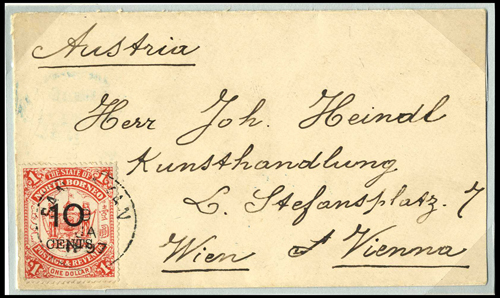 Austria
Herr Joh. Heindl
Kunsthandlung
L. Stefansplatz. 7
Wien Vienna
1 THE STATE OF 1
NORTH BORNEO
10
CENTS
POSTAGE & REVENUE
1 ONE DOLLAR 1
JA